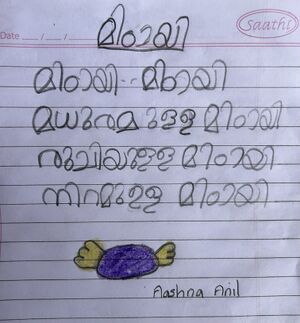 Date __/__/__
Saathi
മിഠായി
മിഠായി.. മിഠായി
മധുരമുള്ള മിഠായി
രുചിയുള്ള മിഠായി
നിറമുള്ള മിഠായി
Aashna Anil